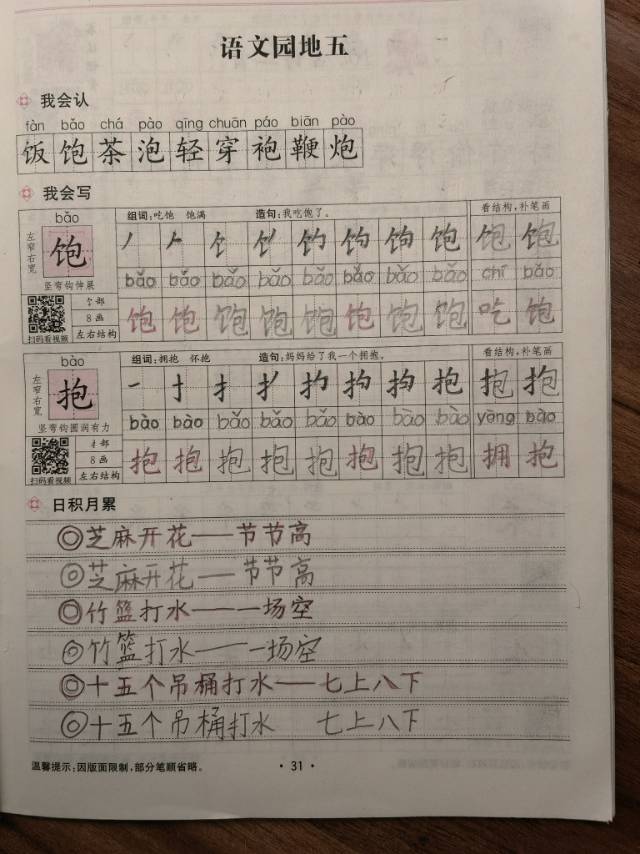 语文园地五
我会认
fàn bǎo chá pào qīng chuān páo biān pào
饭饱茶泡轻穿袍鞭炮
我会写
bǎo 组词:吃饱 饱满 造句:我吃饱了。 看结构,补笔画
左窄右宽 饱 饱 饱 饱
竖弯钩伸展 bǎo bǎo bǎo bǎo bǎo bǎo bǎo bǎo chī bǎo
饣部
8画
扫码看视频 左右结构 饱 饱 饱 饱 饱 饱 饱 饱 吃 饱
bào 组词:拥抱 怀抱 造句:妈妈给了我一个拥抱。 看结构,补笔画
左窄右宽 抱 抱 抱 抱
竖弯钩圆润有力 bào bào bǎo bǎo bǎo bào bào bào yōng bào
扌部
8画
扫码看视频 左右结构 抱 抱 抱 抱 抱 抱 抱 抱 拥 抱
日积月累
◎芝麻开花——节节高
◎芝麻开花——节节高
◎竹篮打水——一场空
◎竹篮打水——一场空
◎十五个吊桶打水——七上八下
◎十五个吊桶打水 七上八下
温馨提示:因版面限制,部分笔顺省略。 · 31 ·